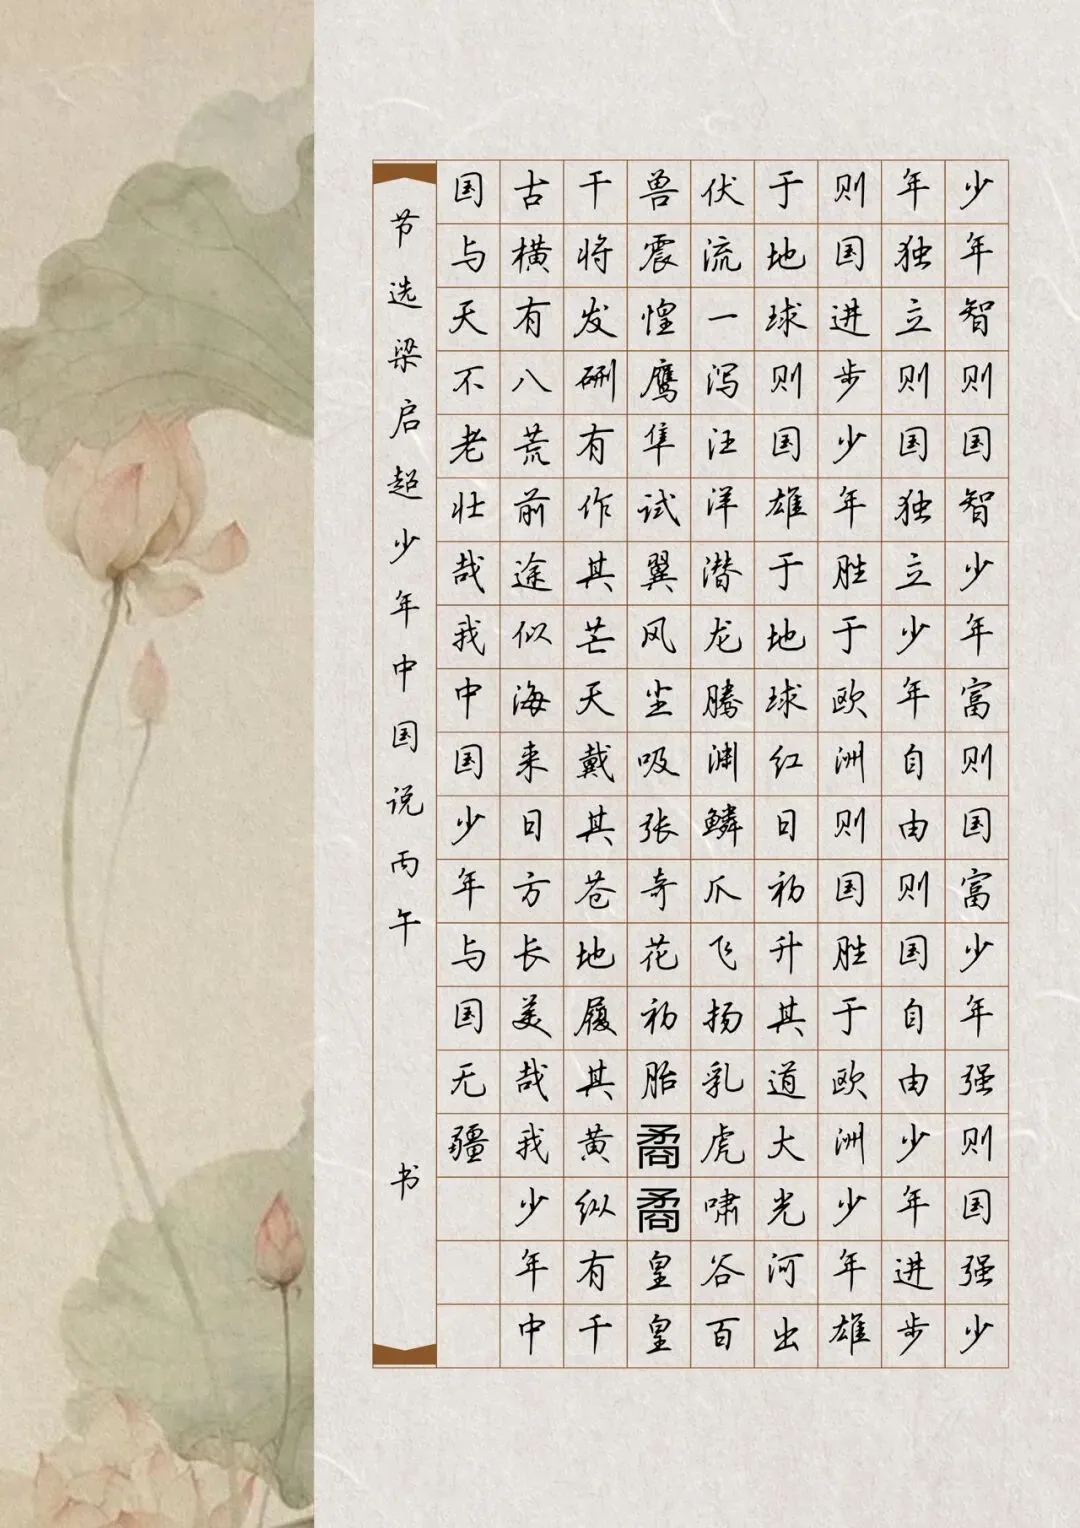 少年智则国智少年富则国富少年强则国强少
年独立则国独立少年自由则国自由少年进步
则国进步少年胜于欧洲则国胜于欧洲少年雄
于地球则国雄于地球红日初升其道大光河出
伏流一泻汪洋潜龙腾渊鳞爪飞扬乳虎啸谷百
兽震惶鹰隼试翼风尘吸张奇花初胎矞矞皇皇
干将发硎有作其芒天戴其苍地履其黄纵有千
古横有八荒前途似海来日方长美哉我少年中
国与天不老壮哉我中国少年与国无疆
节选梁启超少年中国说丙午 书